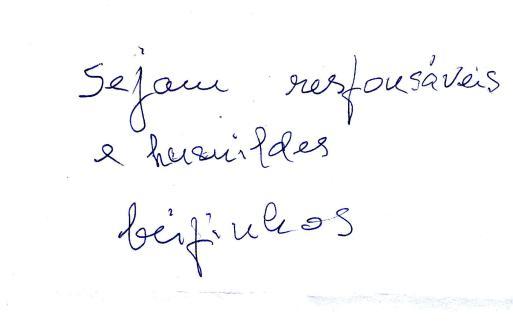 Sejam responsáveis
e humildes
beijinhos